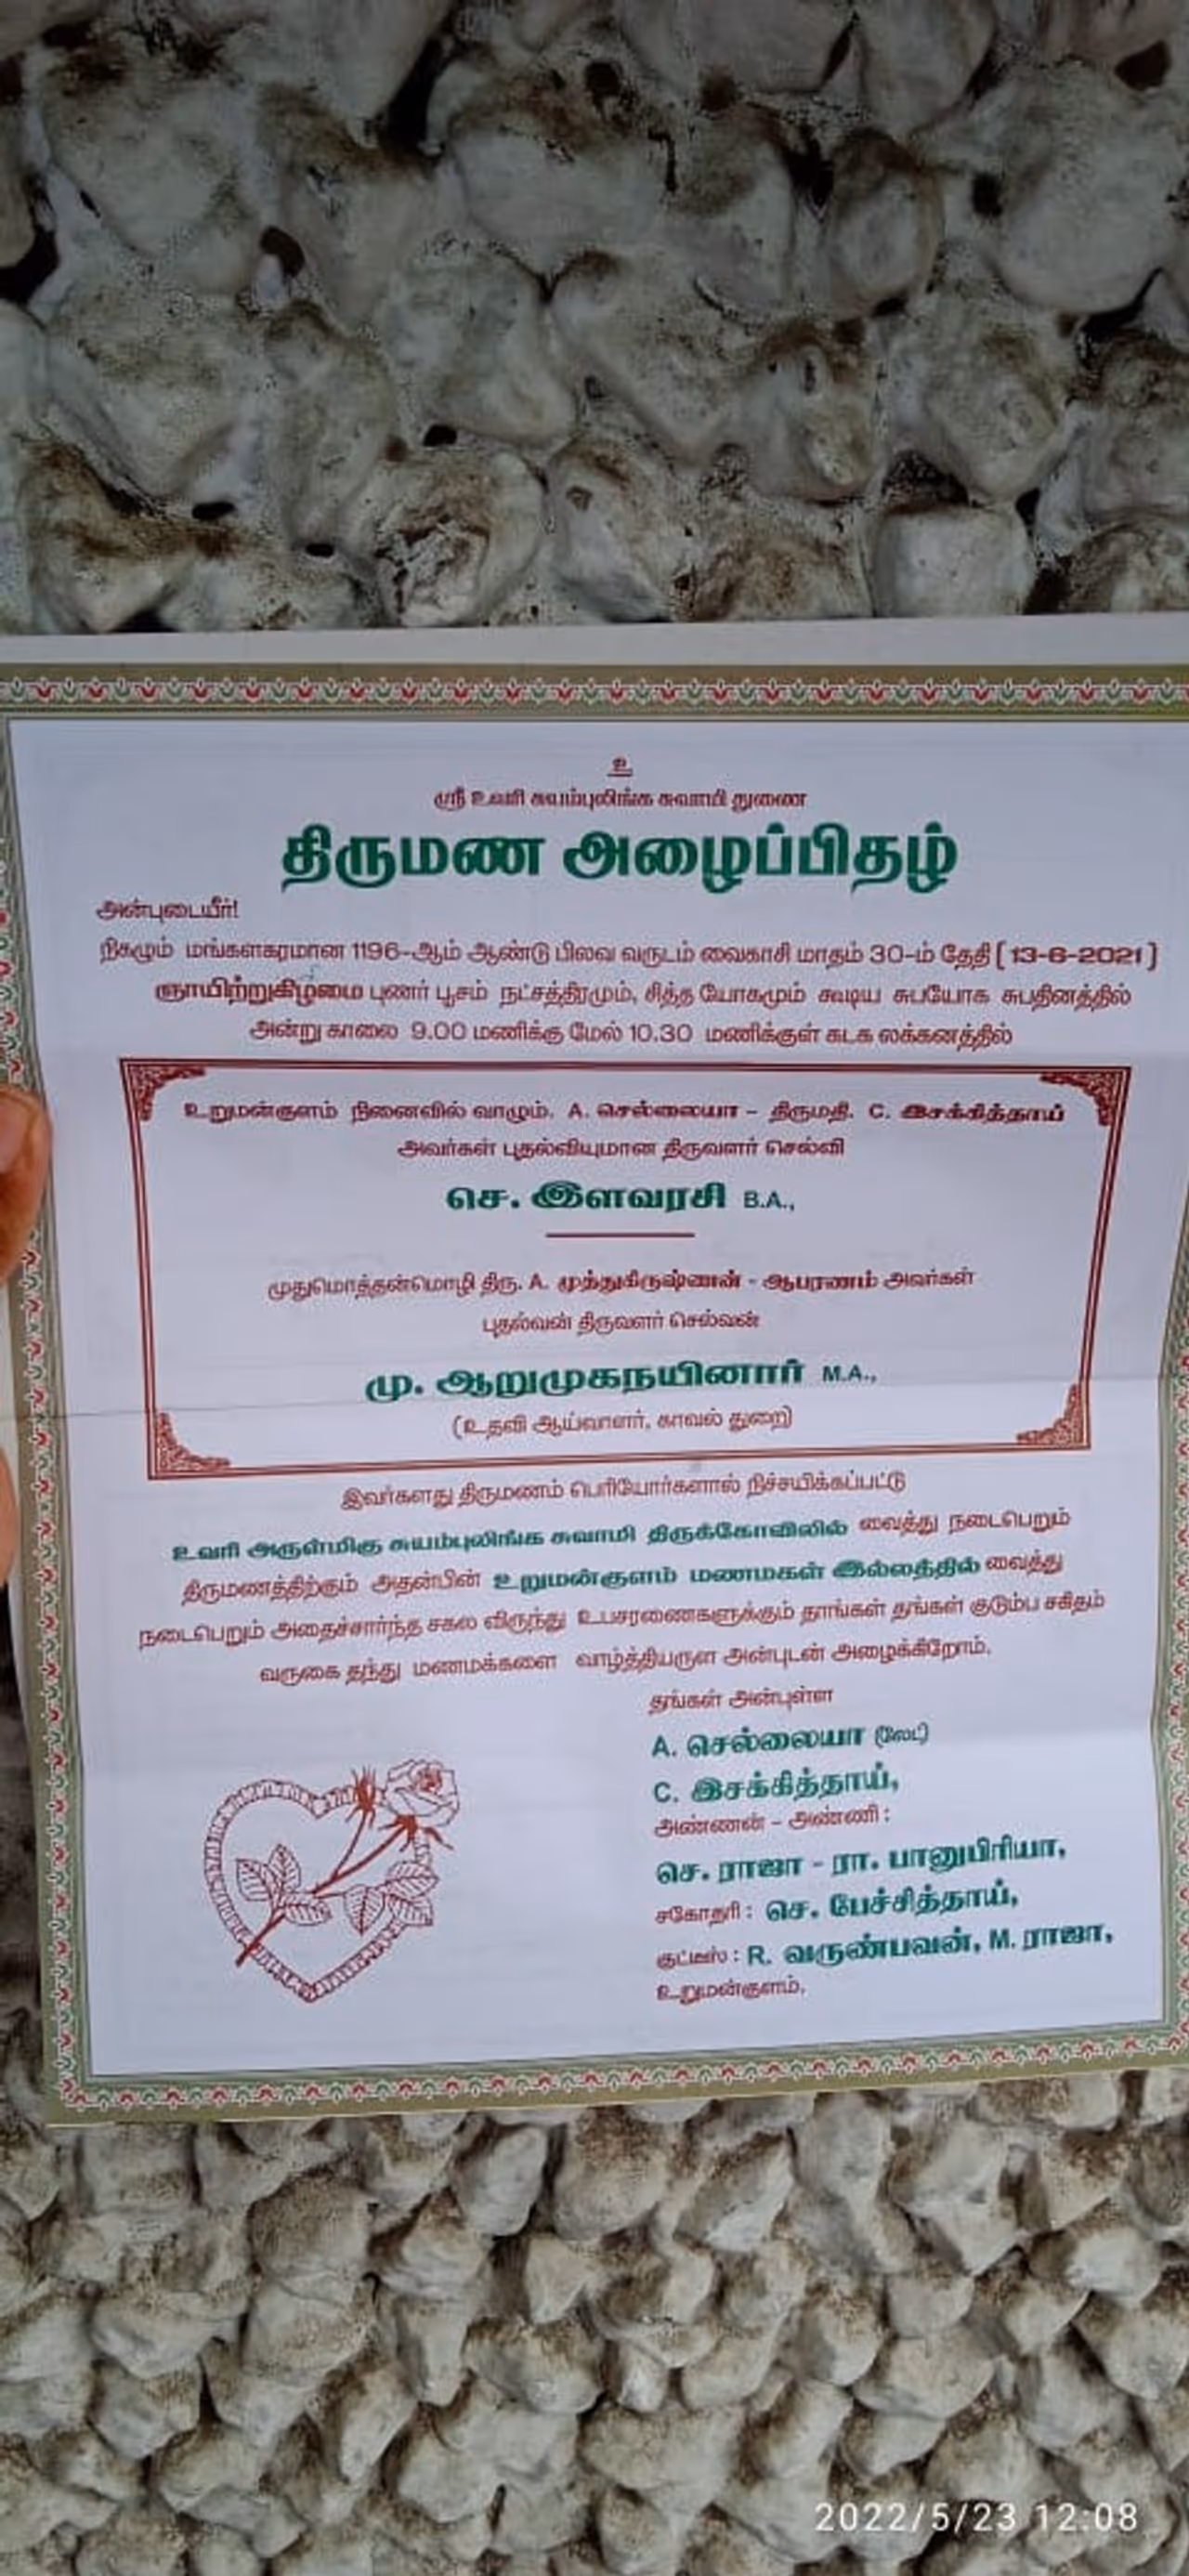 உ
ஸ்ரீ உவரி சுயம்புலிங்க சுவாமி துணை
திருமண அழைப்பிதழ்
அன்புடையீர்!
நிகழும் மங்களகரமான 1196-ஆம் ஆண்டு பிலவ வருடம் வைகாசி மாதம் 30-ம் தேதி (13-6-2021)
ஞாயிற்றுகிழமை புனர் பூசம் நட்சத்திரமும், சித்த யோகமும் கூடிய சுபயோக சுபதினத்தில்
அன்று காலை 9.00 மணிக்கு மேல் 10.30 மணிக்குள் கடக லக்கனத்தில்
உறுமன்குளம் நினைவில் வாழும். A. செல்லையா - திருமதி. C. இசக்கித்தாய்
அவர்கள் புதல்வியுமான திருவளர் செல்வி
செ. இளவரசி B.A.,
முதுமொத்தன்மொழி திரு. A. முத்துகிருஷ்ணன் - ஆபரணம் அவர்கள்
புதல்வன் திருவளர் செல்வன்
மு. ஆறுமுகநயினார் M.A.,
(உதவி ஆய்வாளர், காவல் துறை)
இவர்களது திருமணம் பெரியோர்களால் நிச்சயிக்கப்பட்டு
உவரி அருள்மிகு சுயம்புலிங்க சுவாமி திருக்கோவிலில் வைத்து நடைபெறும்
திருமணத்திற்கும் அதன்பின் உறுமன்குளம் மணமகள் இல்லத்தில் வைத்து
நடைபெறும் அதைச்சார்ந்த சகல விருந்து உபசரணைகளுக்கும் தாங்கள் தங்கள் குடும்ப சகிதம்
வருகை தந்து மணமக்களை வாழ்த்தியருள அன்புடன் அழைக்கிறோம்.
தங்கள் அன்புள்ள
A. செல்லையா (லேட்)
C. இசக்கித்தாய்,
அண்ணன் - அண்ணி :
செ. ராஜா - ரா. பானுபிரியா,
சகோதரி : செ. பேச்சித்தாய்,
குட்டீஸ் : R. வருண்பவன், M. ராஜா,
உறுமன்குளம்.
2022/5/23 12:08